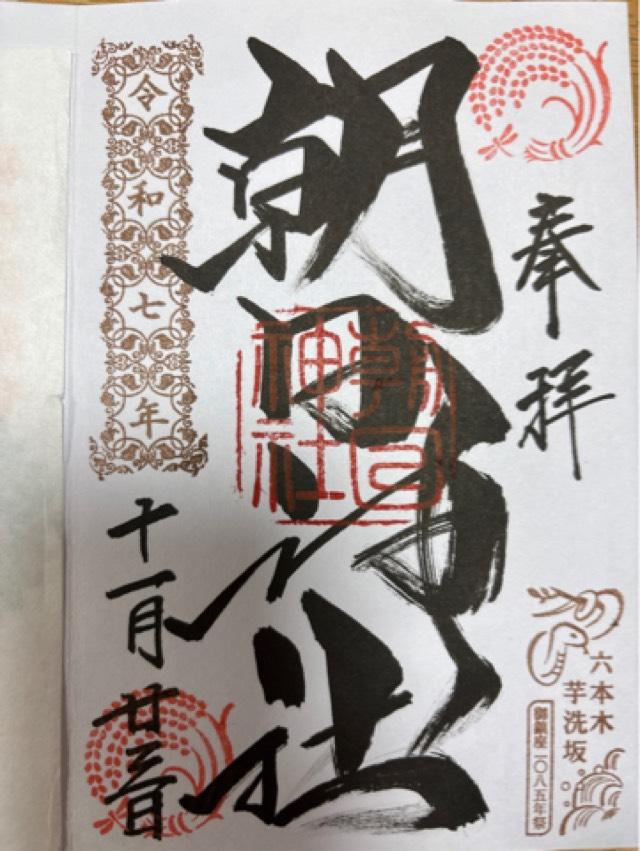 奉拝
六本木
芋洗坂
御鎮座一〇八五年祭
朝日神社
朝日
神社
令和七年
十一月廿三日